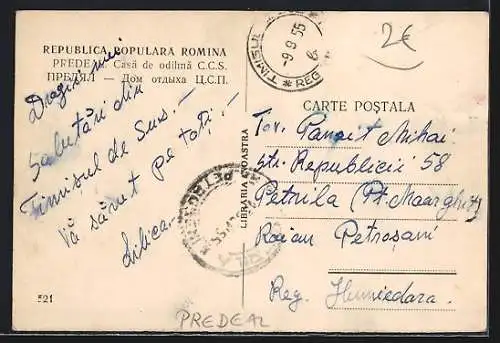 REPUBLICA POPULARA ROMINA
PREDEAL — Casă de odihnă C.C.S.
ПРЕДЯЛ — Дом отдыха Ц.С.П.
Dragii mei
Salutări din
Timisul de Sus. —
Vă sărut pe toți. —
Libica
521
PREDEAL
LIBRARIA NOASTRA
TIMISUL
-9.9.55
REG
2€
CARTE POȘTALA
Tov. Panait Mihai
Str. Republicii 58
Petrila (Pt.
Raion Petroșani
Reg. Huniedara.